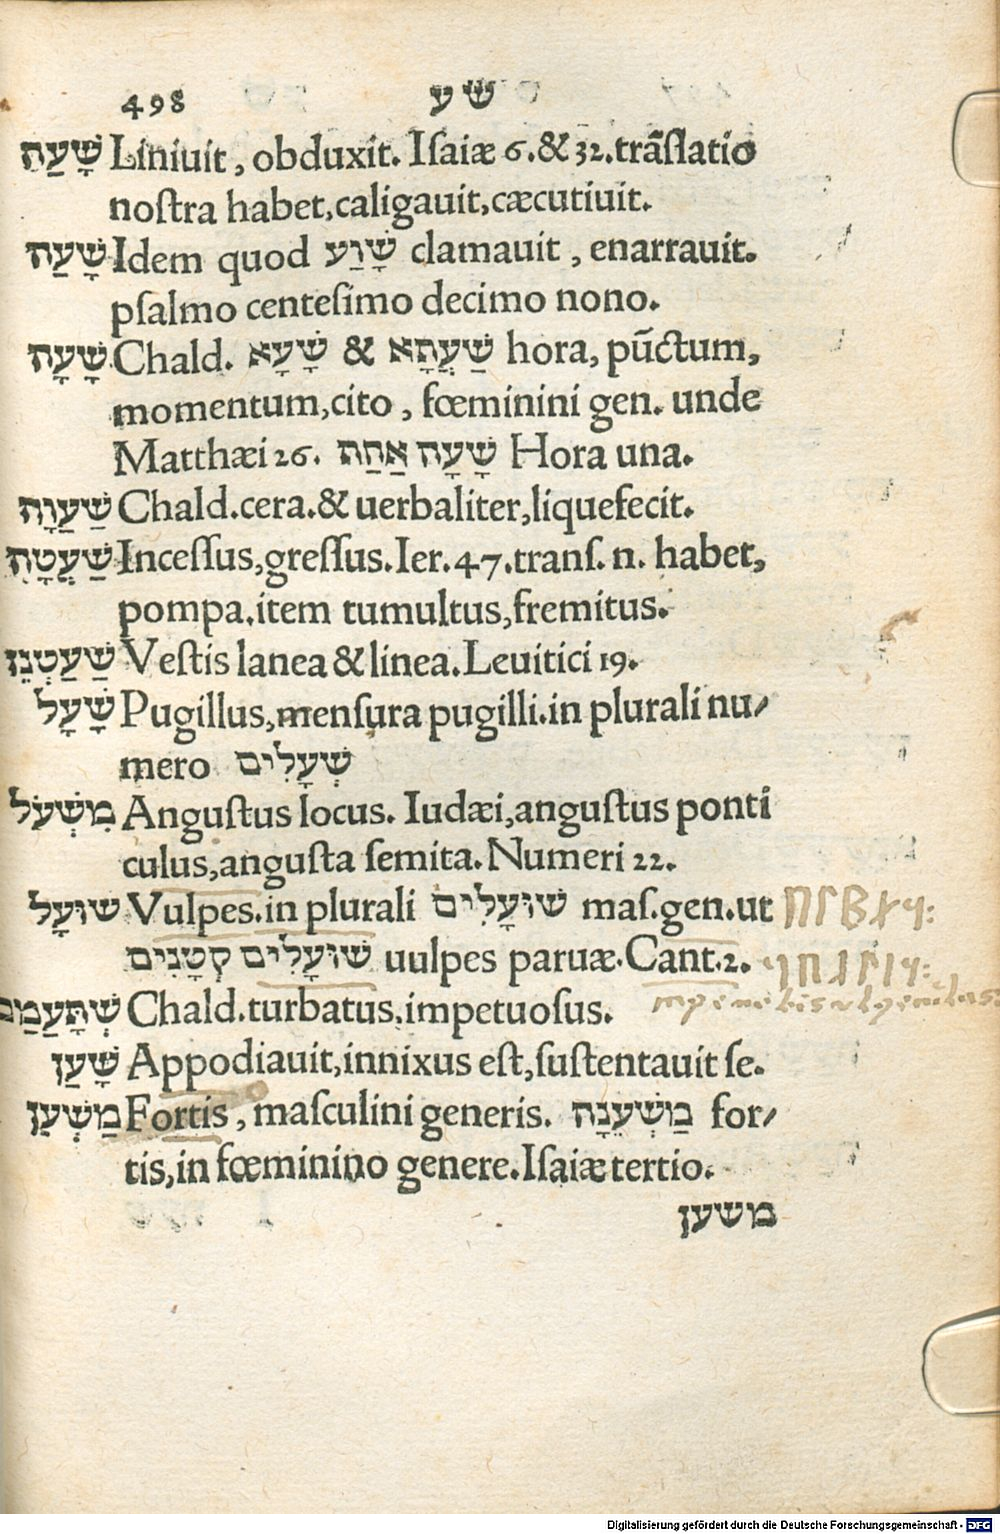 498 שע
שָׁעַה Liniuit, obduxit. Iſaiæ 6.& 32.trãſlatio
noſtra habet,caligauit,cæcutiuit.
שָׁעַה Idem quod שָׁוַע clamauit, enarrauit.
pſalmo centeſimo decimo nono.
שָׁעָה Chald. שָׁעָא & שַׁעֲתָא hora, pũctum,
momentum,cito, fœminini gen. unde
Matthæi 26. שָׁעָה אַחַת Hora una.
שַׁעֲוָה Chald.cera.& uerbaliter,liquefecit.
שַׁעֲטָה Inceſſus,greſſus.Ier.47.tranſ.n. habet,
pompa.item tumultus,fremitus.
שַׁעַטְנֵז Veſtis lanea & linea.Leuitici 19.
שָׁעָל Pugillus,menſura pugilli.in plurali nu/
mero שְׁעָלִים
מִשְׁעֹל Anguſtus locus. Iudæi,anguſtus ponti
culus,anguſta ſemita.Numeri 22.
שׁוּעָל Vulpes.in plurali שׁוּעָלִים maſ.gen.ut
שׁוּעָלִים קְטָנִּים uulpes paruæ.Cant.2.
Chald.turbatus,impetuoſus.
שָׁעַן Appodiauit,innixus eſt,ſuſtentauit ſe.
מַשְׁעֵן Fortis, maſculini generis. מַשְׁעֵנָה for/
tis,in fœminino genere.Iſaiæ tertio.
משען
Digitalisierung gefördert durch die Deutsche Forschungsgemeinschaft - DFG